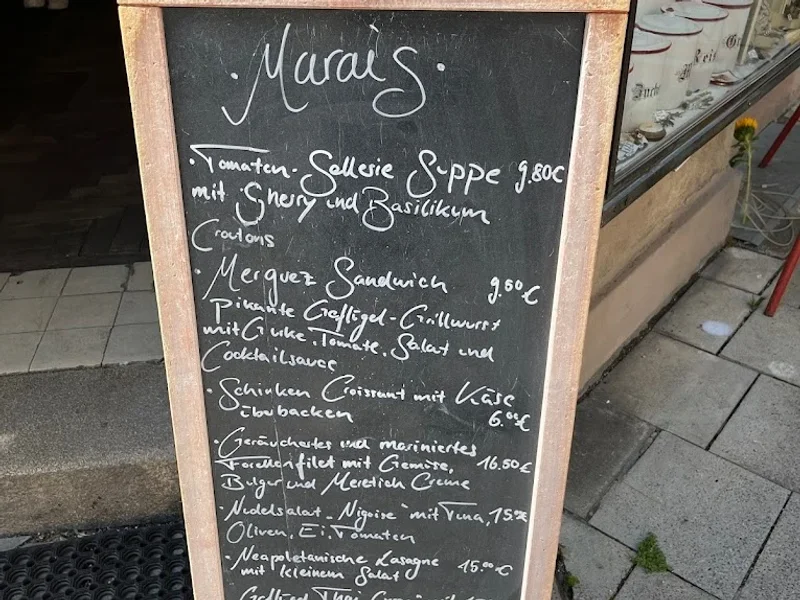 Marais
· Tomaten-Sellerie Suppe 9.80€
mit Sherry und Basilikum
Croutons
· Merguez Sandwich 9.50€
Pikante Geflügel-Grillwurst
mit Gurke, Tomate, Salat und
Cocktailsauce
· Schinken Croissant mit Käse
überbacken 6.00€
· Geräuchertes und mariniertes
Forellenfilet mit Gemüse, 16.50€
Bulgur und Meretich Creme
· Nudelsalat „Nigoise" mit Tuna, 15.
Oliven, Ei, Tomaten
· Neapoletanische Lasagne 15.00€
mit kleinem Salat
Geflügel Thai